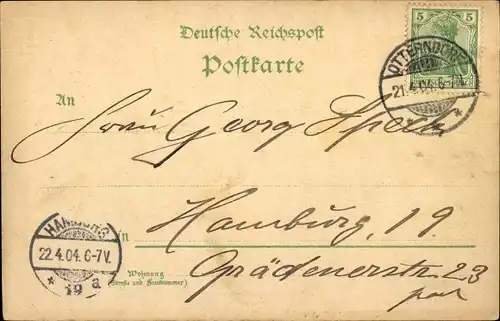 Deutsche Reichspost
Postkarte
5 5
OTTERNDORF
21.4.04. 6-7V.
An
Frau Georg Speck
HAMBURG
22.4.04. 6-7V.
* 19 a
in Hamburg, 19.
Wohnung
(Straße und Hausnummer)
Grädenerstr. 23